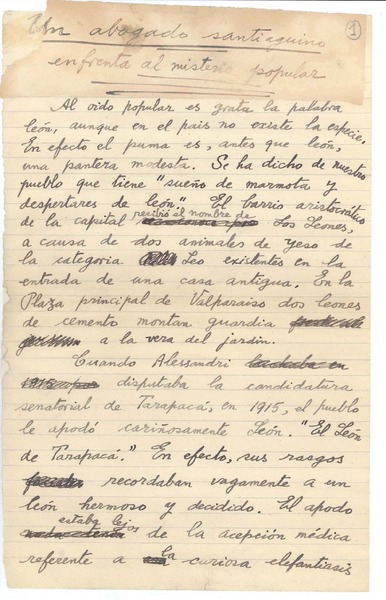 Un abogado santiaguino
1
enfrenta al misterio popular
Al oido popular es grata la palabra
león, aunque en el pais no existe la especie.
En efecto el puma es, antes que león,
una pantera modesta. Se ha dicho de nuestro
pueblo que tiene "sueño de marmota y
despertares de león". El barrio aristocrático
de la capital recibió el nombre de Los Leones,
a causa de dos animales de yeso de
la categoria Leo existentes en la
entrada de una casa antigua. En la
Plaza principal de Valparaiso dos leones
de cemento montan guardia
a la vera del jardin.
Cuando Alessandri luchaba en
1915 disputaba la candidatura
senatorial de Tarapacá, en 1915, el pueblo
le apodó cariñosamente León. "El León
de Tarapacá." En efecto, sus rasgos
recordaban vagamente a un
león hermoso y decidido. El apodo
estaba lejos
nada tenia de la acepción médica
referente a la curiosa elefantiasis